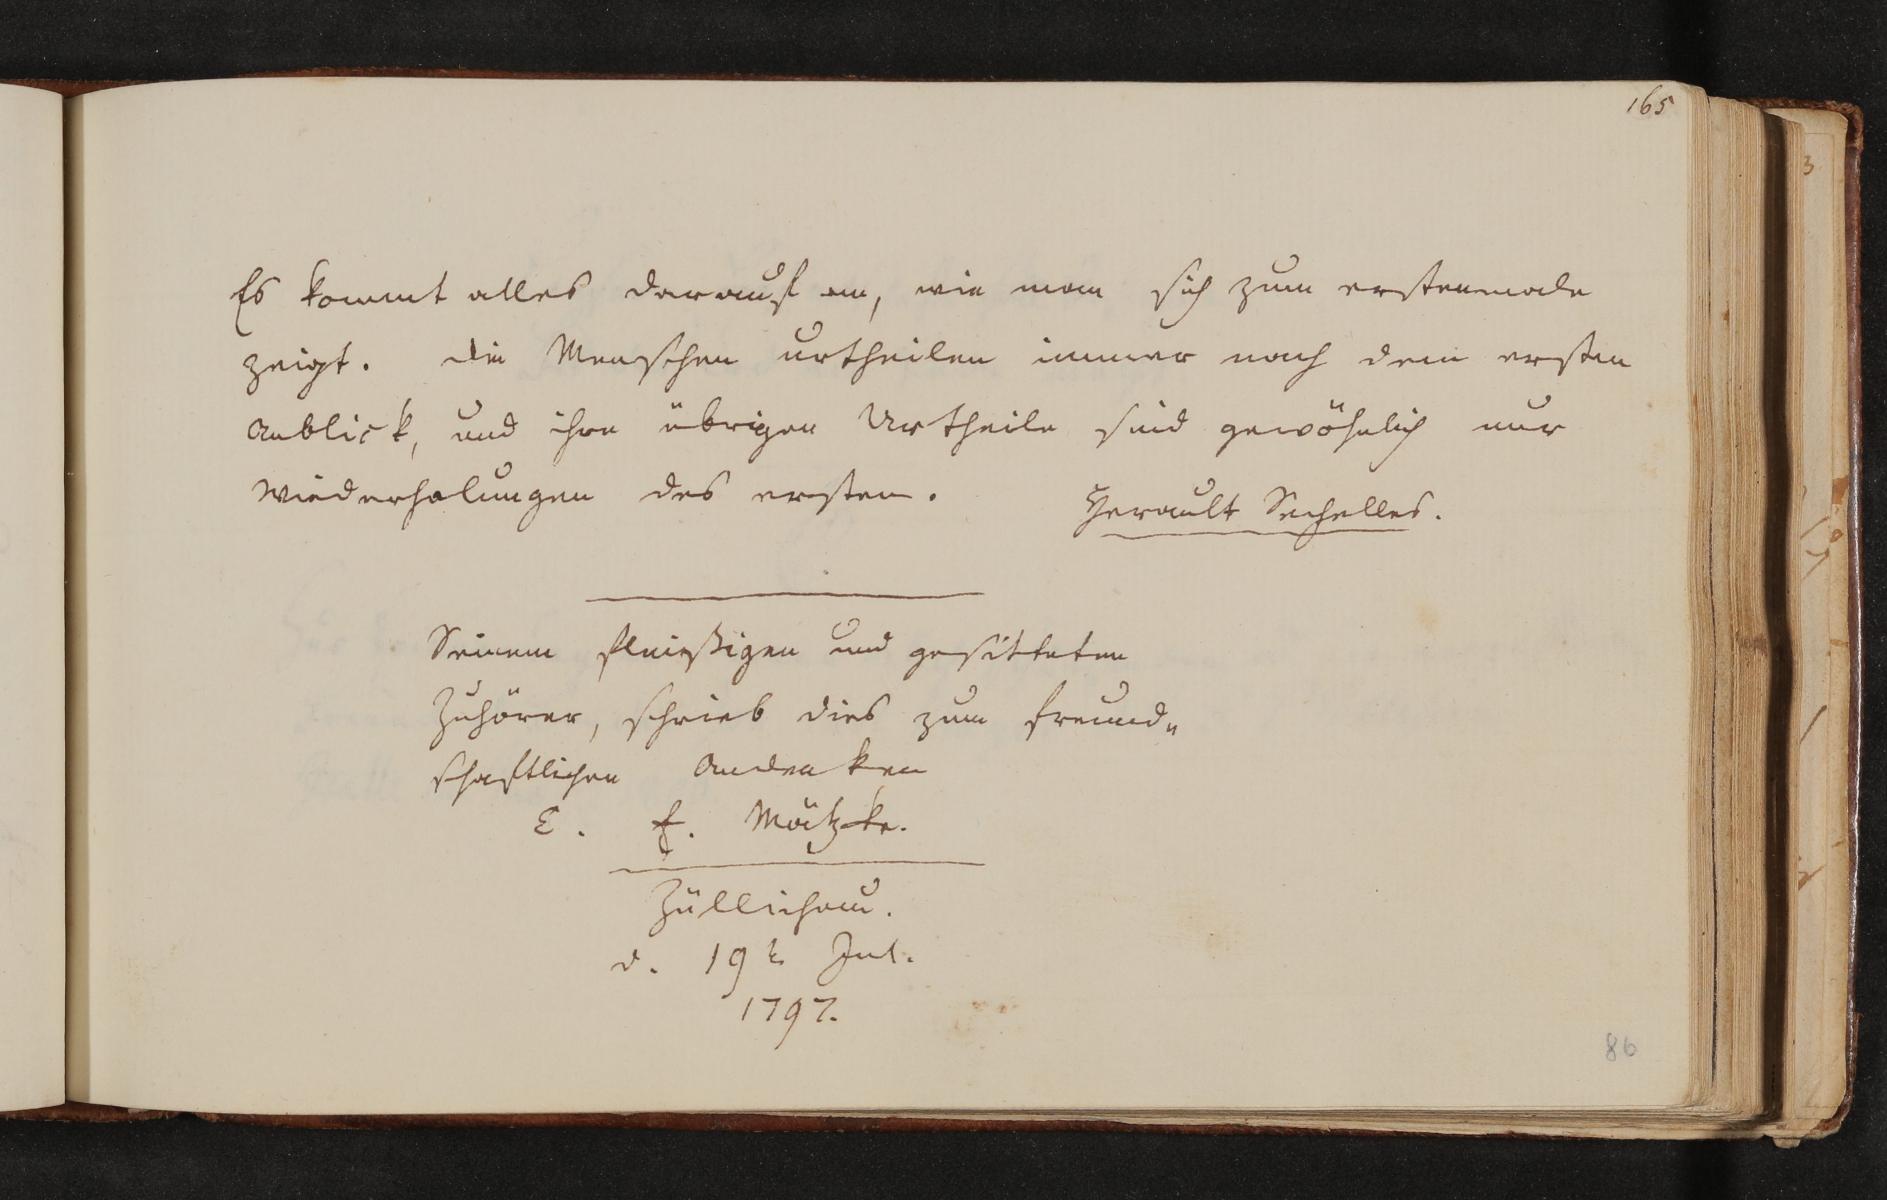 165
Es kommt alles darauf an, wie man sich zum erstenmale
zeigt. die Menschen urtheilen immer nach dem ersten
Anblick, und ihre übrigen Urtheile sind gewöhnlich nur
Wiederholungen des ersten.
Herault Sechelles.
Seinem fleißigen und gesitteten
Zuhörer, schrieb dies zum freund„
schaftlichen Andenken
E. F. Mätzke.
Züllichau.
d. 19t Jul.
1797.
86